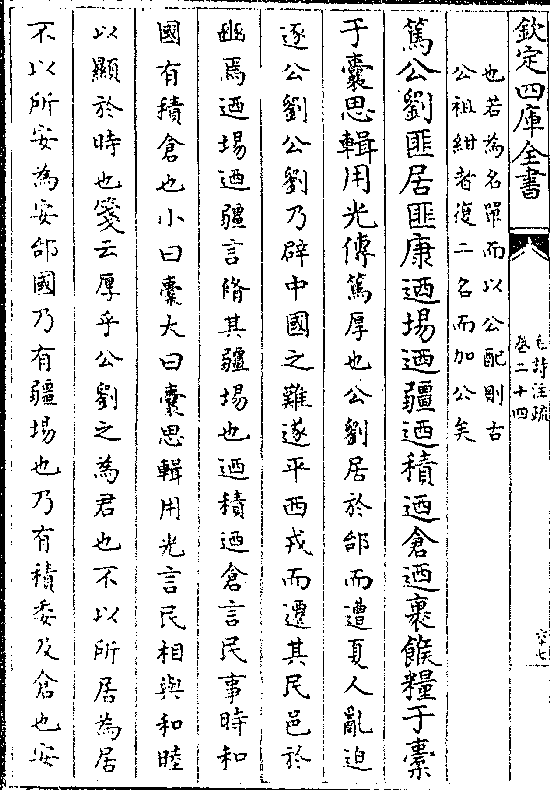 欽定四庫全書
毛詩注疏
卷二十四
六七
也若為名單而以公配則古
公祖紺者復二名而加公矣
篤公劉匪居匪康迺埸迺疆迺積迺倉迺裹餱糧于橐
于囊思輯用光傳篤厚也公劉居於邰而遭夏人亂迫
逐公劉公劉乃辟中國之難遂平西戎而遷其民邑於
豳焉迺埸迺疆言脩其疆埸也迺積迺倉言民事時和
國有積倉也小曰橐大曰囊思輯用光言民相與和睦
以顯於時也箋云厚乎公劉之為君也不以所居為居
不以所安為安邰國乃有疆埸也乃有積委及倉也安